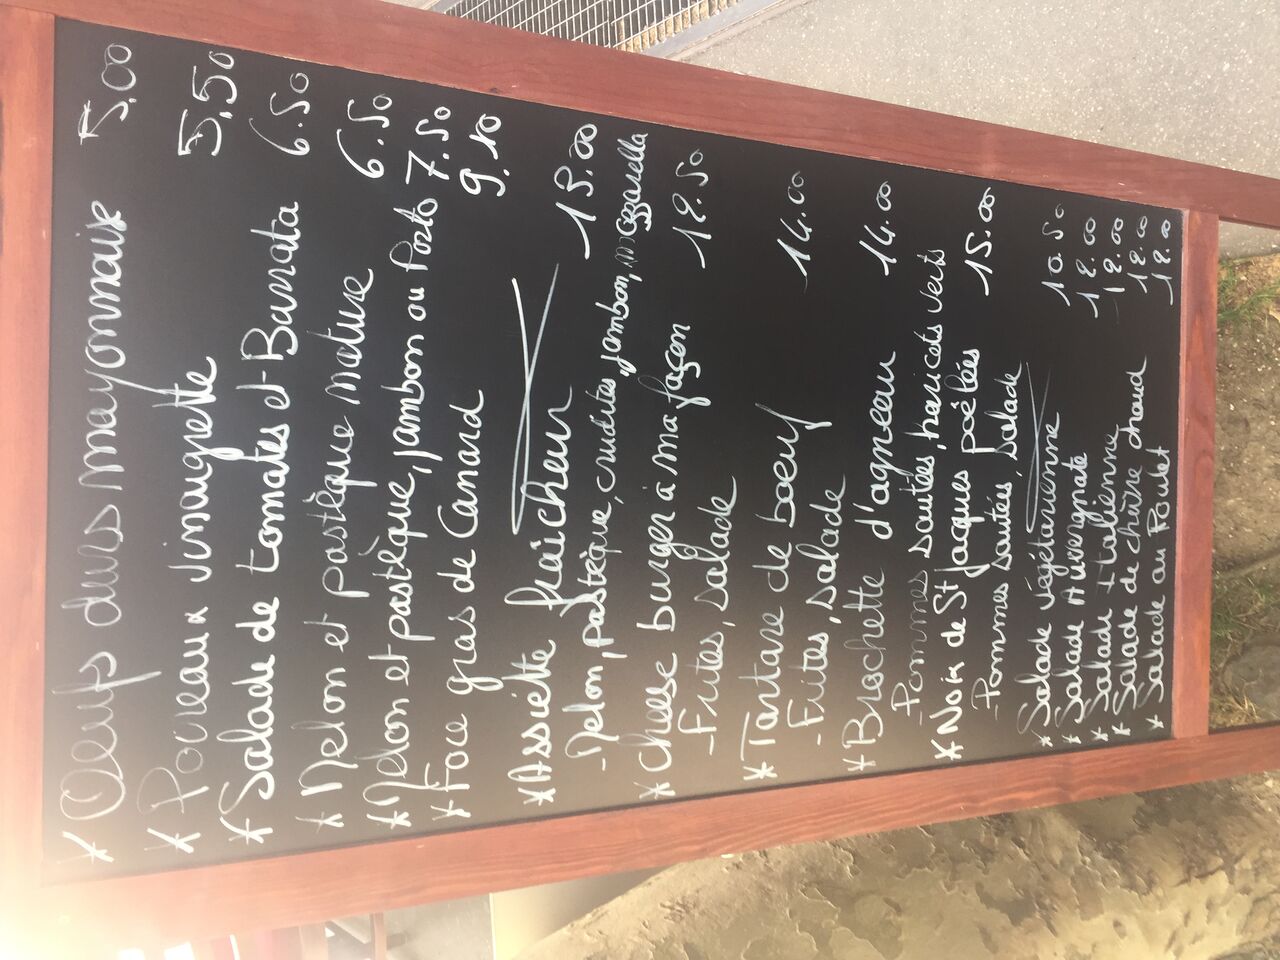 * Oeufs durs mayonnaise 5,00
* Poireaux vinaigrette 5,50
* Salade de tomates et Burrata 6.50
* Melon et pastèque nature 6.50
* Melon et pastèque, jambon ou Porto 7.50
* Foie gras de Canard 9.10
* Assiette fraîcheur 15.00
- Melon, pastèque, crudités, jambon, mozzarella
* Cheese burger à ma façon 12.50
- Frites, salade
* Tartare de boeuf 14.00
- Frites, salade
* Brochette d'agneau 14.00
- Pommes sautées, haricots verts
* Noix de St Jaques poêlées 15.00
- Pommes sautées, salade
* Salade végétarienne 10.50
* Salade Auvergnate 12.00
* Salade Italienne 12.00
* Salade de chèvre chaud 12.00
* Salade au Poulet 12.00